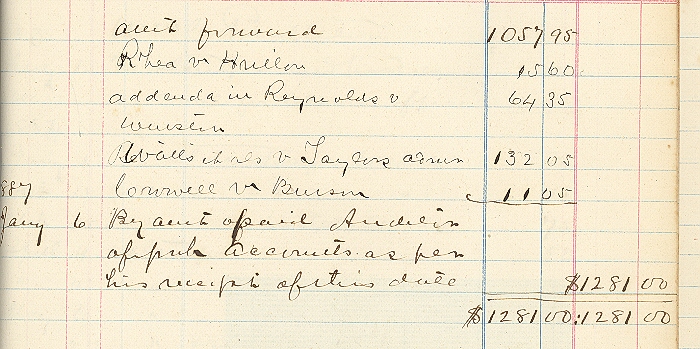 amt forward 1057 95
Rhea v Hutton 15 60
addenda in Reynolds v 64 35
Winston
Watts & als v Taylors admr 132 05
Crowell v Burson 11 05
887
Jany 6 By amt paid Auditor
of pub accounts as per
his receipt of this date $1281 00
$1281 00 : 1281 00